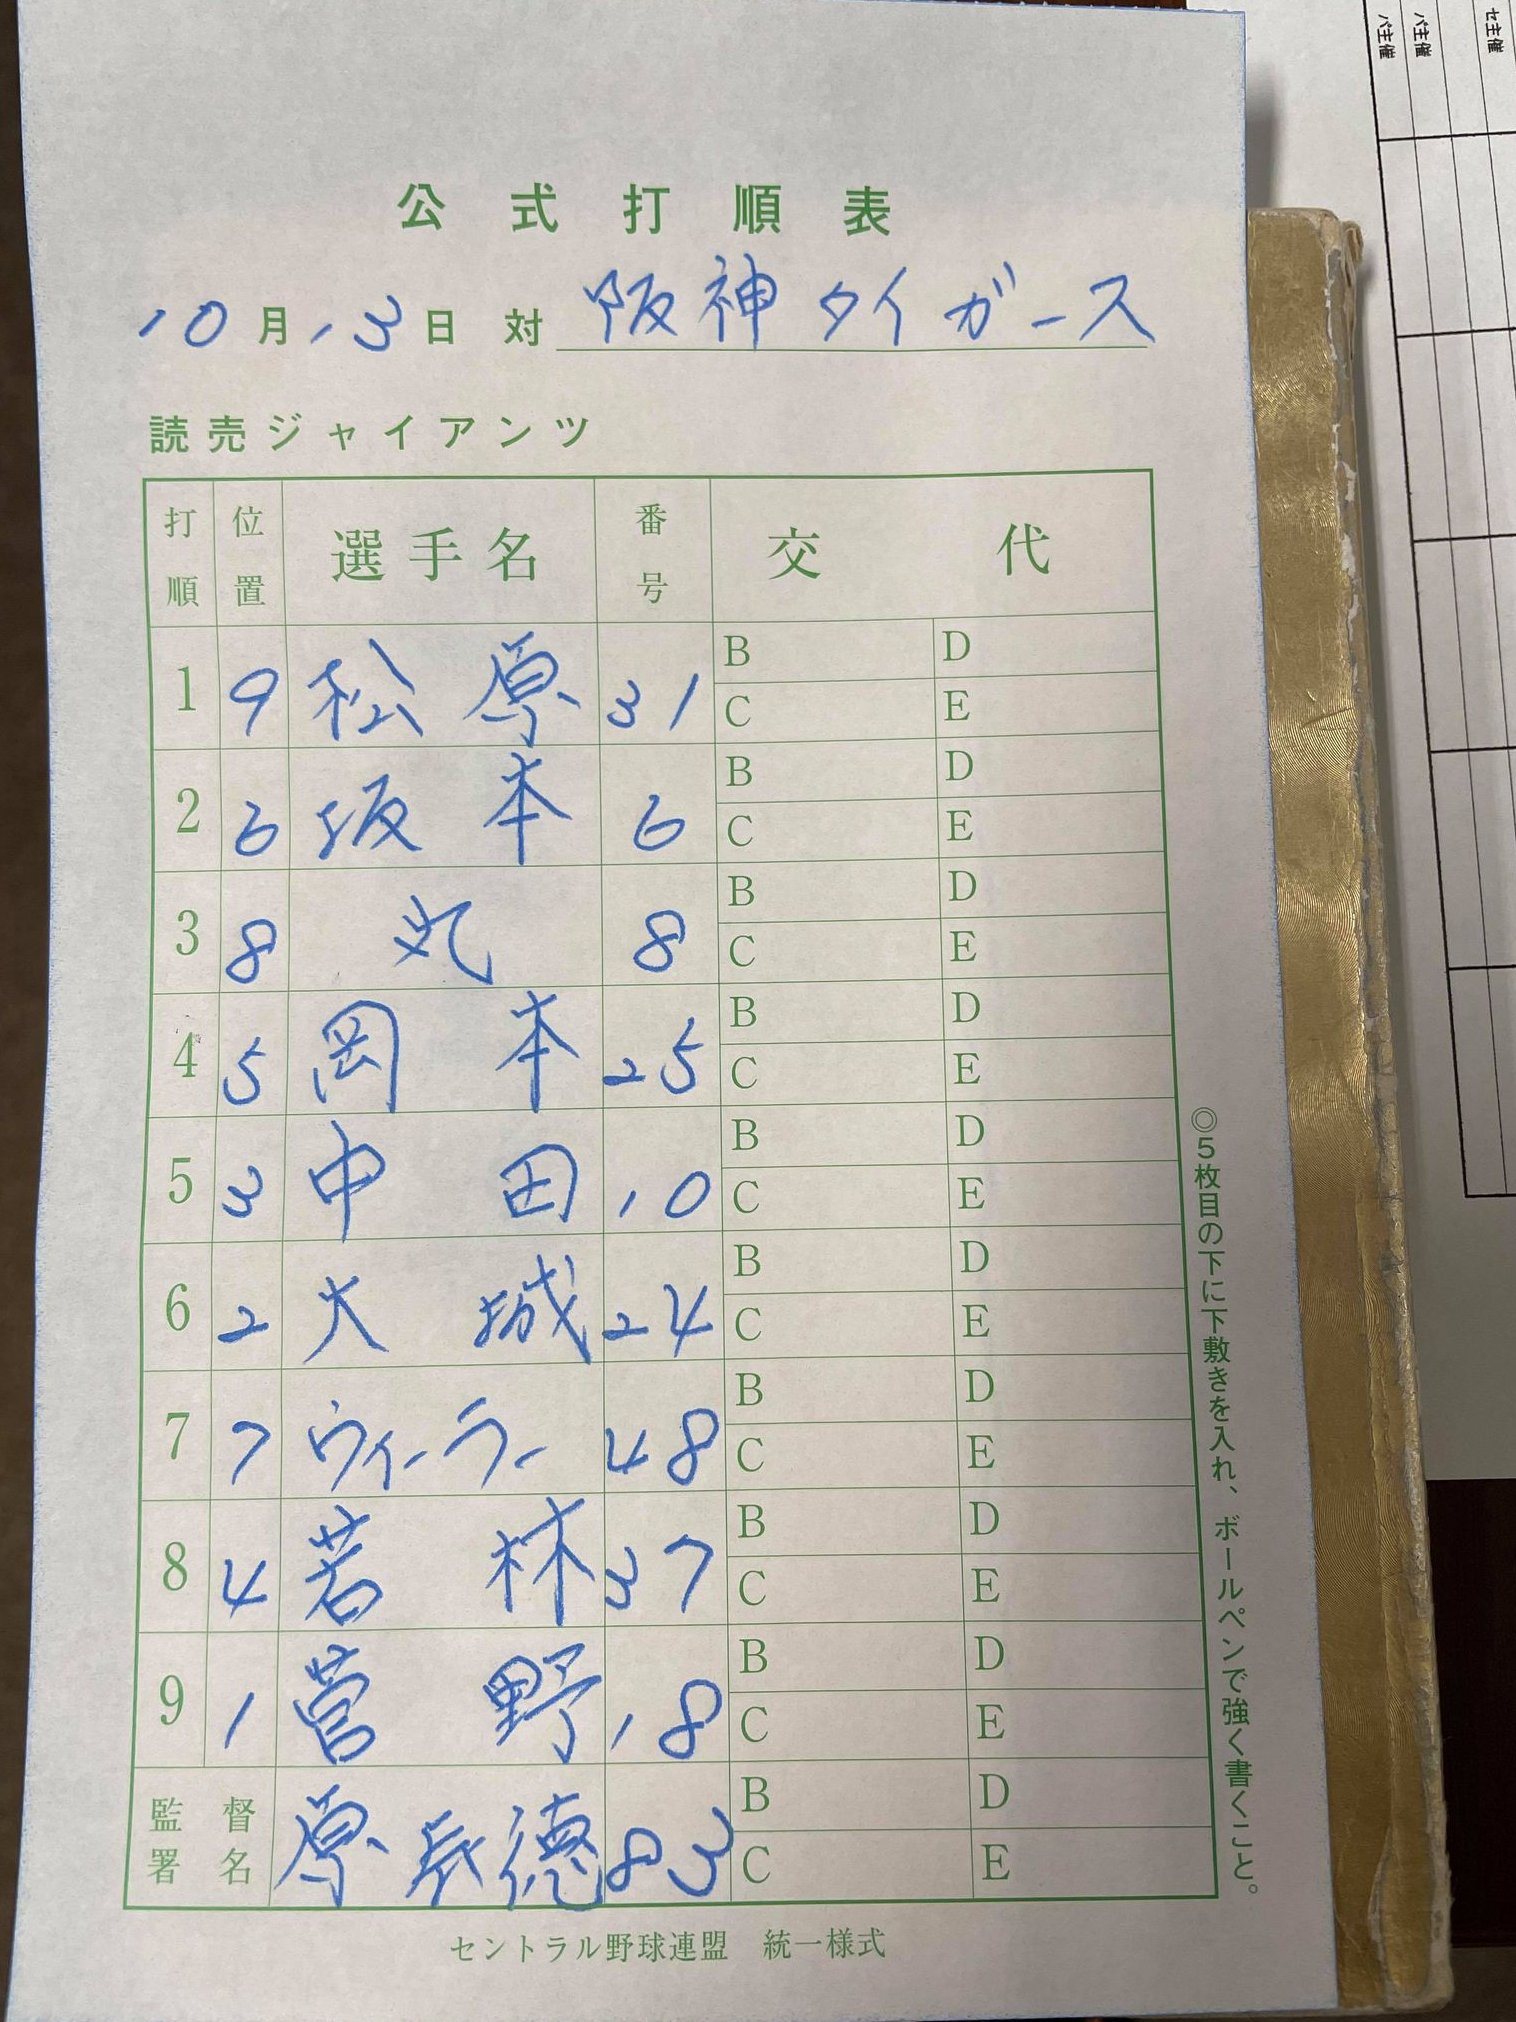 公式打順表
10月13日 対 阪神タイガース
読売ジャイアンツ
打順 位置 選手名 番号 交代
1 9 松原 31 B D
C E
2 6 坂本 6 B D
C E
3 8 丸 8 B D
C E
4 5 岡本 25 B D
C E
5 3 中田 10 B D
C E
6 2 大城 24 B D
C E
7 7 ウィーラー 48 B D
C E
8 4 若林 37 B D
C E
9 1 菅野 18 B D
C E
監督署名 原辰徳 83 B D
C E
セントラル野球連盟 統一様式
◎5枚目の下に下敷きを入れ、ボールペンで強く書くこと。
セ主催
パ主催
パ主催